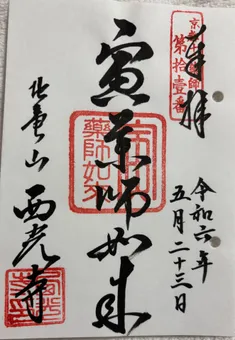 奉拝
京都十二薬師
第拾壱番
令和六年
五月二十三日
寅薬師如来
寅薬師如来
西光寺